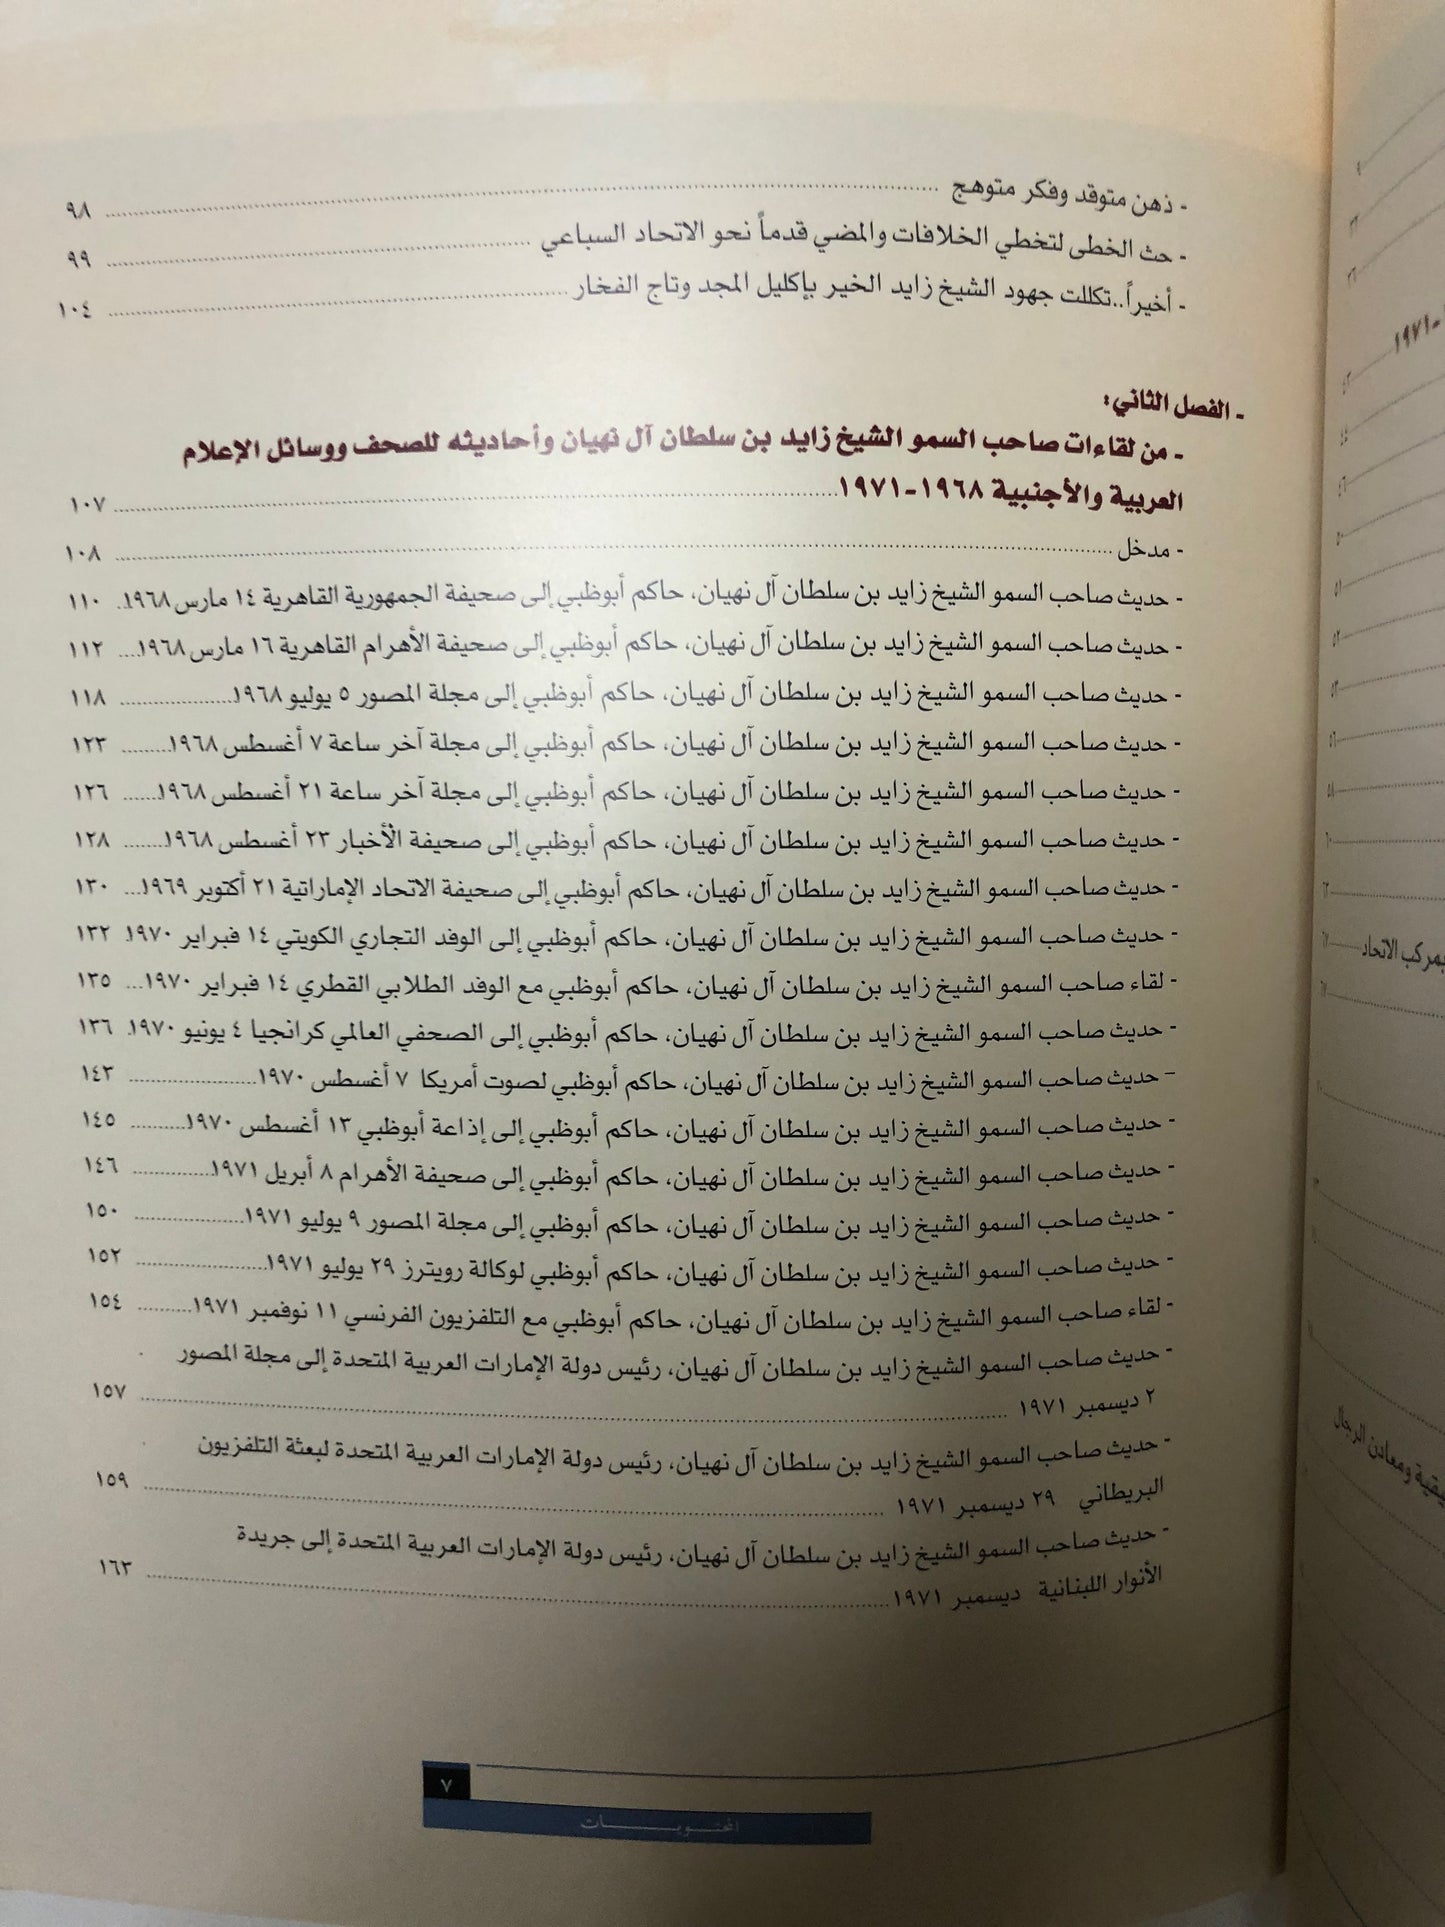 - ذهن متوقد وفكر متوهج ٩٨
- حث الخطى لتخطي الخلافات والمضي قدماً نحو الاتحاد السباعي ٩٩
- أخيراً..تكللت جهود الشيخ زايد الخير بإكليل المجد وتاج الفخار ١٠٤
- الفصل الثاني:
- من لقاءات صاحب السمو الشيخ زايد بن سلطان آل نهيان وأحاديثه للصحف ووسائل الإعلام
العربية والأجنبية ١٩٦٨-١٩٧١ ١٠٧
- مدخل ١٠٨
- حديث صاحب السمو الشيخ زايد بن سلطان آل نهيان، حاكم أبوظبي إلى صحيفة الجمهورية القاهرية ١٤ مارس ١٩٦٨ ١١٠
- حديث صاحب السمو الشيخ زايد بن سلطان آل نهيان، حاكم أبوظبي إلى صحيفة الأهرام القاهرية ١٦ مارس ١٩٦٨ ١١٢
- حديث صاحب السمو الشيخ زايد بن سلطان آل نهيان، حاكم أبوظبي إلى مجلة المصور ٥ يوليو ١٩٦٨ ١١٨
- حديث صاحب السمو الشيخ زايد بن سلطان آل نهيان، حاكم أبوظبي إلى مجلة آخر ساعة ٧ أغسطس ١٩٦٨ ١٢٣
- حديث صاحب السمو الشيخ زايد بن سلطان آل نهيان، حاكم أبوظبي إلى مجلة آخر ساعة ٢١ أغسطس ١٩٦٨ ١٢٦
- حديث صاحب السمو الشيخ زايد بن سلطان آل نهيان، حاكم أبوظبي إلى صحيفة الأخبار ٢٣ أغسطس ١٩٦٨ ١٢٨
- حديث صاحب السمو الشيخ زايد بن سلطان آل نهيان، حاكم أبوظبي إلى صحيفة الاتحاد الإماراتية ٢١ أكتوبر ١٩٦٩ ١٣٠
- حديث صاحب السمو الشيخ زايد بن سلطان آل نهيان، حاكم أبوظبي إلى الوفد التجاري الكويتي ١٤ فبراير ١٩٧٠ ١٣٢
- لقاء صاحب السمو الشيخ زايد بن سلطان آل نهيان، حاكم أبوظبي مع الوفد الطلابي القطري ١٤ فبراير ١٩٧٠ ١٣٥
- حديث صاحب السمو الشيخ زايد بن سلطان آل نهيان، حاكم أبوظبي إلى الصحفي العالمي كرانجيا ٤ يونيو ١٩٧٠ ١٣٦
- حديث صاحب السمو الشيخ زايد بن سلطان آل نهيان، حاكم أبوظبي لصوت أمريكا ٧ أغسطس ١٩٧٠ ١٤٣
- حديث صاحب السمو الشيخ زايد بن سلطان آل نهيان، حاكم أبوظبي إلى إذاعة أبوظبي ١٣ أغسطس ١٩٧٠ ١٤٥
- حديث صاحب السمو الشيخ زايد بن سلطان آل نهيان، حاكم أبوظبي إلى صحيفة الأهرام ٨ أبريل ١٩٧١ ١٤٦
- حديث صاحب السمو الشيخ زايد بن سلطان آل نهيان، حاكم أبوظبي إلى مجلة المصور ٩ يوليو ١٩٧١ ١٥٠
- حديث صاحب السمو الشيخ زايد بن سلطان آل نهيان، حاكم أبوظبي لوكالة رويترز ٢٩ يوليو ١٩٧١ ١٥٢
- لقاء صاحب السمو الشيخ زايد بن سلطان آل نهيان، حاكم أبوظبي مع التلفزيون الفرنسي ١١ نوفمبر ١٩٧١ ١٥٤
- حديث صاحب السمو الشيخ زايد بن سلطان آل نهيان، رئيس دولة الإمارات العربية المتحدة إلى مجلة المصور
٢ ديسمبر ١٩٧١ ١٥٧
- حديث صاحب السمو الشيخ زايد بن سلطان آل نهيان، رئيس دولة الإمارات العربية المتحدة لبعثة التلفزيون
البريطاني ٢٩ ديسمبر ١٩٧١ ١٥٩
- حديث صاحب السمو الشيخ زايد بن سلطان آل نهيان، رئيس دولة الإمارات العربية المتحدة إلى جريدة
الأنوار اللبنانية ديسمبر ١٩٧١ ١٦٣
٧
المحتويــــــات
١٩٧١-
بمركب الاتحاد
ومعادن الرجال